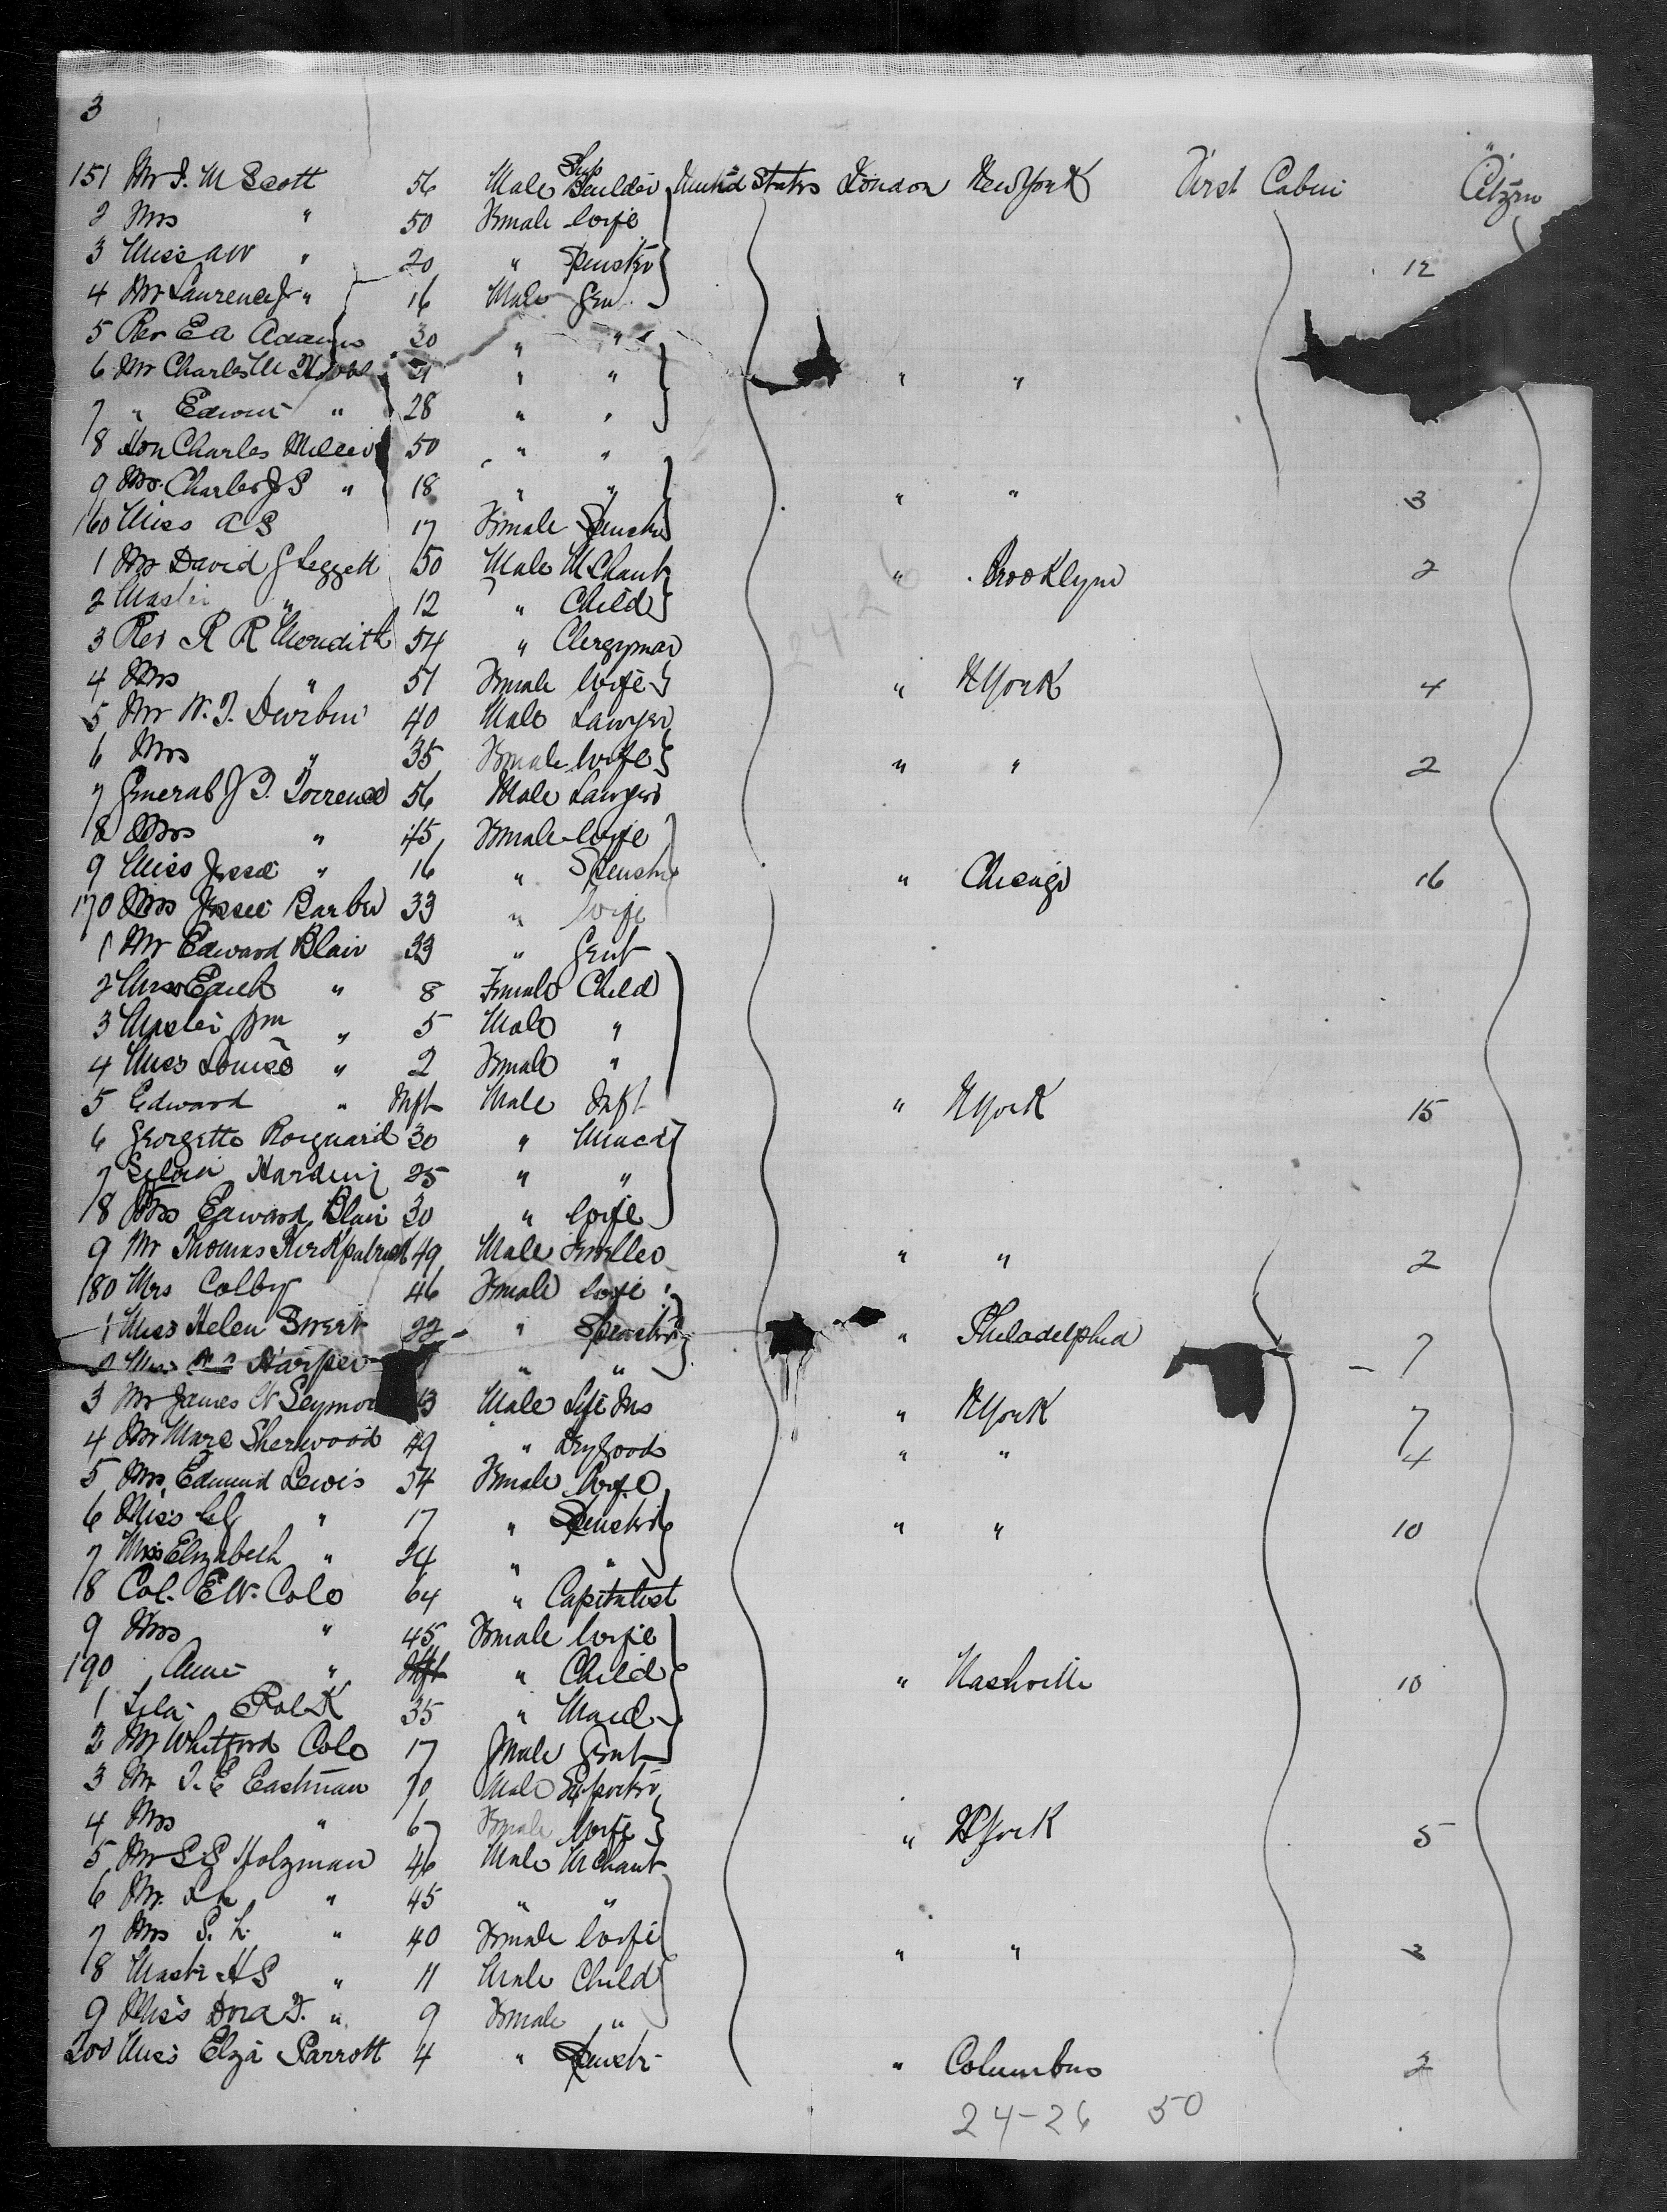 3
151 Mr I. M Scott 56 Male Ship Builder United States London New York First Cabin Citizen
2 Mrs " 50 Female Wife
3 Miss A W " 20 " Spinster 12
4 Mr Laurence J " 16 Male Gen
5 Rev E A Adams 30 " "
6 Mr Charles M 31 " " " "
7 " Edwin " 28 " "
8 Hon Charles Miller 50 " "
9 Mr. Charles J S " 18 " " " " 3
160 Miss A S 17 Female Spinster
1 Mr David G Leggett 50 Male MChant " Brooklyn 2
2 Master " 12 " Child
3 Rev R R Meredith 54 " Clergyman
4 Mrs " 51 Female Wife " N York 4
5 Mr W. T. Durbin 40 Male Lawyer
6 Mrs " 35 Female Wife " " 2
7 General J T. Torrence 56 Male Lawyer
8 Mrs " 45 Female Wife
9 Miss Jessie " 16 " Spinster " Chicago 16
170 Mrs Jessie Barber 33 " Wife
1 Mr Edward Blair 33 " Gent
2 Miss Edith " 8 Female Child
3 Master Wm " 5 Male "
4 Miss Louise " 2 Female "
5 Edward " Inft Male Inft " N York 15
6 Georgette 30 "
7 Harding 25 " "
8 Mrs Edward Blair 30 " Wife
9 Mr Thomas Kirkpatrick 49 Male Jweller " " 2
180 Mrs Colby 46 Female Wife
1 Miss Helen 22 " Spinster " Philadelphia
2 Harper " " - 7
3 Mr James W Seymour 43 Male Life Ins " N York 7
4 Mr Marc Sherwood 49 " Dry Goods " " 4
5 Mrs Edmund Lewis 54 Female Wife
6 Miss " 17 " Spinster " " 10
7 Miss Elizabeth " 24 " "
8 Col. E W. Cole 64 " Capitalist
9 Mrs " 45 Female Wife
190 Anne " Inft " Child " Nashville 10
1 Lela Polk 35 " Maid
2 Mr Whitford Cole 17 Male Gent
3 Mr T. E Eastman 70 Male Exporter
4 Mrs " 67 Female Wife " N York 5
5 Mr S S Holzman 46 Male MChant
6 Mr. " 45 " "
7 Mrs S. L. " 40 Female Wife " " 3
8 Mastr H S " 11 Male Child
9 Miss Dora T. " 9 Female "
200 Miss Elza Parrott 4 " Spinstr " Columbus 2
24-26 50